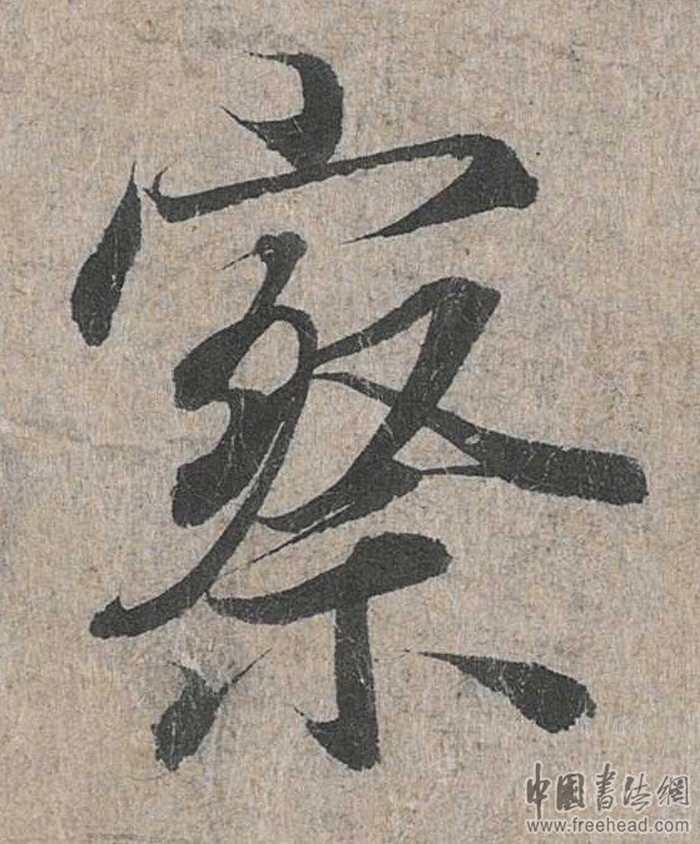 察
中国书法網
www.freehead.com